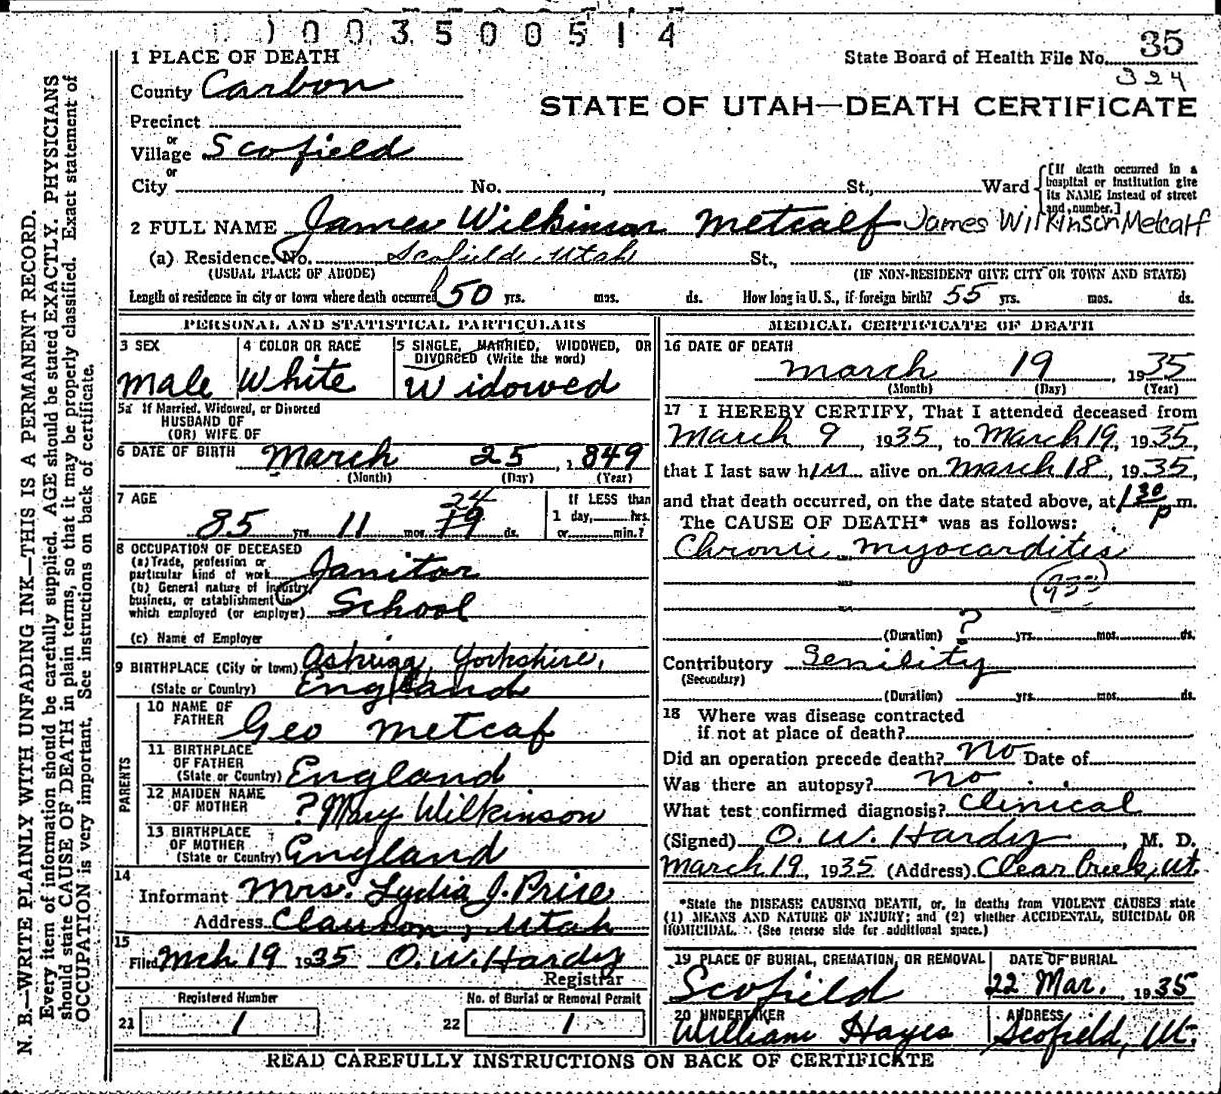 1003500514
State Board of Health File No. 35
324
1 PLACE OF DEATH
County Carbon
STATE OF UTAH—DEATH CERTIFICATE
Precinct
or
Village Scofield
or
City No. , St., Ward
[If death occurred in a hospital or institution give its NAME instead of street and number.]
2 FULL NAME James Wilkinson Metcalf James Wilkinson Metcalf
(a) Residence. No. Scofield, Utah St.,
(USUAL PLACE OF ABODE) (IF NON-RESIDENT GIVE CITY OR TOWN AND STATE)
Length of residence in city or town where death occurred 50 yrs. mos. ds. How long in U. S., if foreign birth? 55 yrs. mos. ds.
PERSONAL AND STATISTICAL PARTICULARS
3 SEX
Male
4 COLOR OR RACE
White
5 SINGLE, MARRIED, WIDOWED, OR DIVORCED (Write the word)
Widowed
5a If Married, Widowed, or Divorced
HUSBAND OF
(OR) WIFE OF
6 DATE OF BIRTH March 25, 1849
(Month) (Day) (Year)
7 AGE
85 yrs. 11 mos. 24 ds.
If LESS than
1 day, hrs.
or min.?
8 OCCUPATION OF DECEASED
(a) Trade, profession or
particular kind of work Janitor
(b) General nature of industry,
business, or establishment in
which employed (or employer) School
(c) Name of Employer
9 BIRTHPLACE (City or town) Oskrigg, Yorkshire,
(State or Country) England
PARENTS
10 NAME OF
FATHER Geo Metcaf
11 BIRTHPLACE
OF FATHER
(State or Country) England
12 MAIDEN NAME
OF MOTHER ? Mary Wilkinson
13 BIRTHPLACE
OF MOTHER
(State or Country) England
14
Informant Mrs. Lydia J. Price
Address Clawson, Utah
15
Filed Mch 19 1935 O. W. Hardy
Registrar
Registered Number
21 1
No. of Burial or Removal Permit
22 1
MEDICAL CERTIFICATE OF DEATH
16 DATE OF DEATH
March 19, 1935
(Month) (Day) (Year)
17 I HEREBY CERTIFY, That I attended deceased from
March 9, 1935, to March 19, 1935,
that I last saw him alive on March 18, 1935,
and that death occurred, on the date stated above, at 1 30 P m.
The CAUSE OF DEATH* was as follows:
Chronic myocardites
(Duration) ? yrs. mos. ds.
Contributory Senility
(Secondary)
(Duration) yrs. mos. ds.
18 Where was disease contracted
if not at place of death?
Did an operation precede death? No Date of
Was there an autopsy? no
What test confirmed diagnosis? Clinical
(Signed) O. W. Hardy, M. D.
March 19, 1935 (Address) Clear Creek, Ut.
*State the DISEASE CAUSING DEATH, or, in deaths from VIOLENT CAUSES state
(1) MEANS AND NATURE OF INJURY; and (2) whether ACCIDENTAL, SUICIDAL OR
HOMICIDAL. (See reverse side for additional space.)
19 PLACE OF BURIAL, CREMATION, OR REMOVAL
Scofield
DATE OF BURIAL
22 Mar., 1935
20 UNDERTAKER
William Hayes
ADDRESS
Scofield, Ut.
READ CAREFULLY INSTRUCTIONS ON BACK OF CERTIFICATE
N. B.—WRITE PLAINLY WITH UNFADING INK—THIS IS A PERMANENT RECORD.
Every item of information should be carefully supplied. AGE should be stated EXACTLY. PHYSICIANS
should state CAUSE OF DEATH in plain terms, so that it may be properly classified. Exact statement of
OCCUPATION is very important. See instructions on back of certificate.